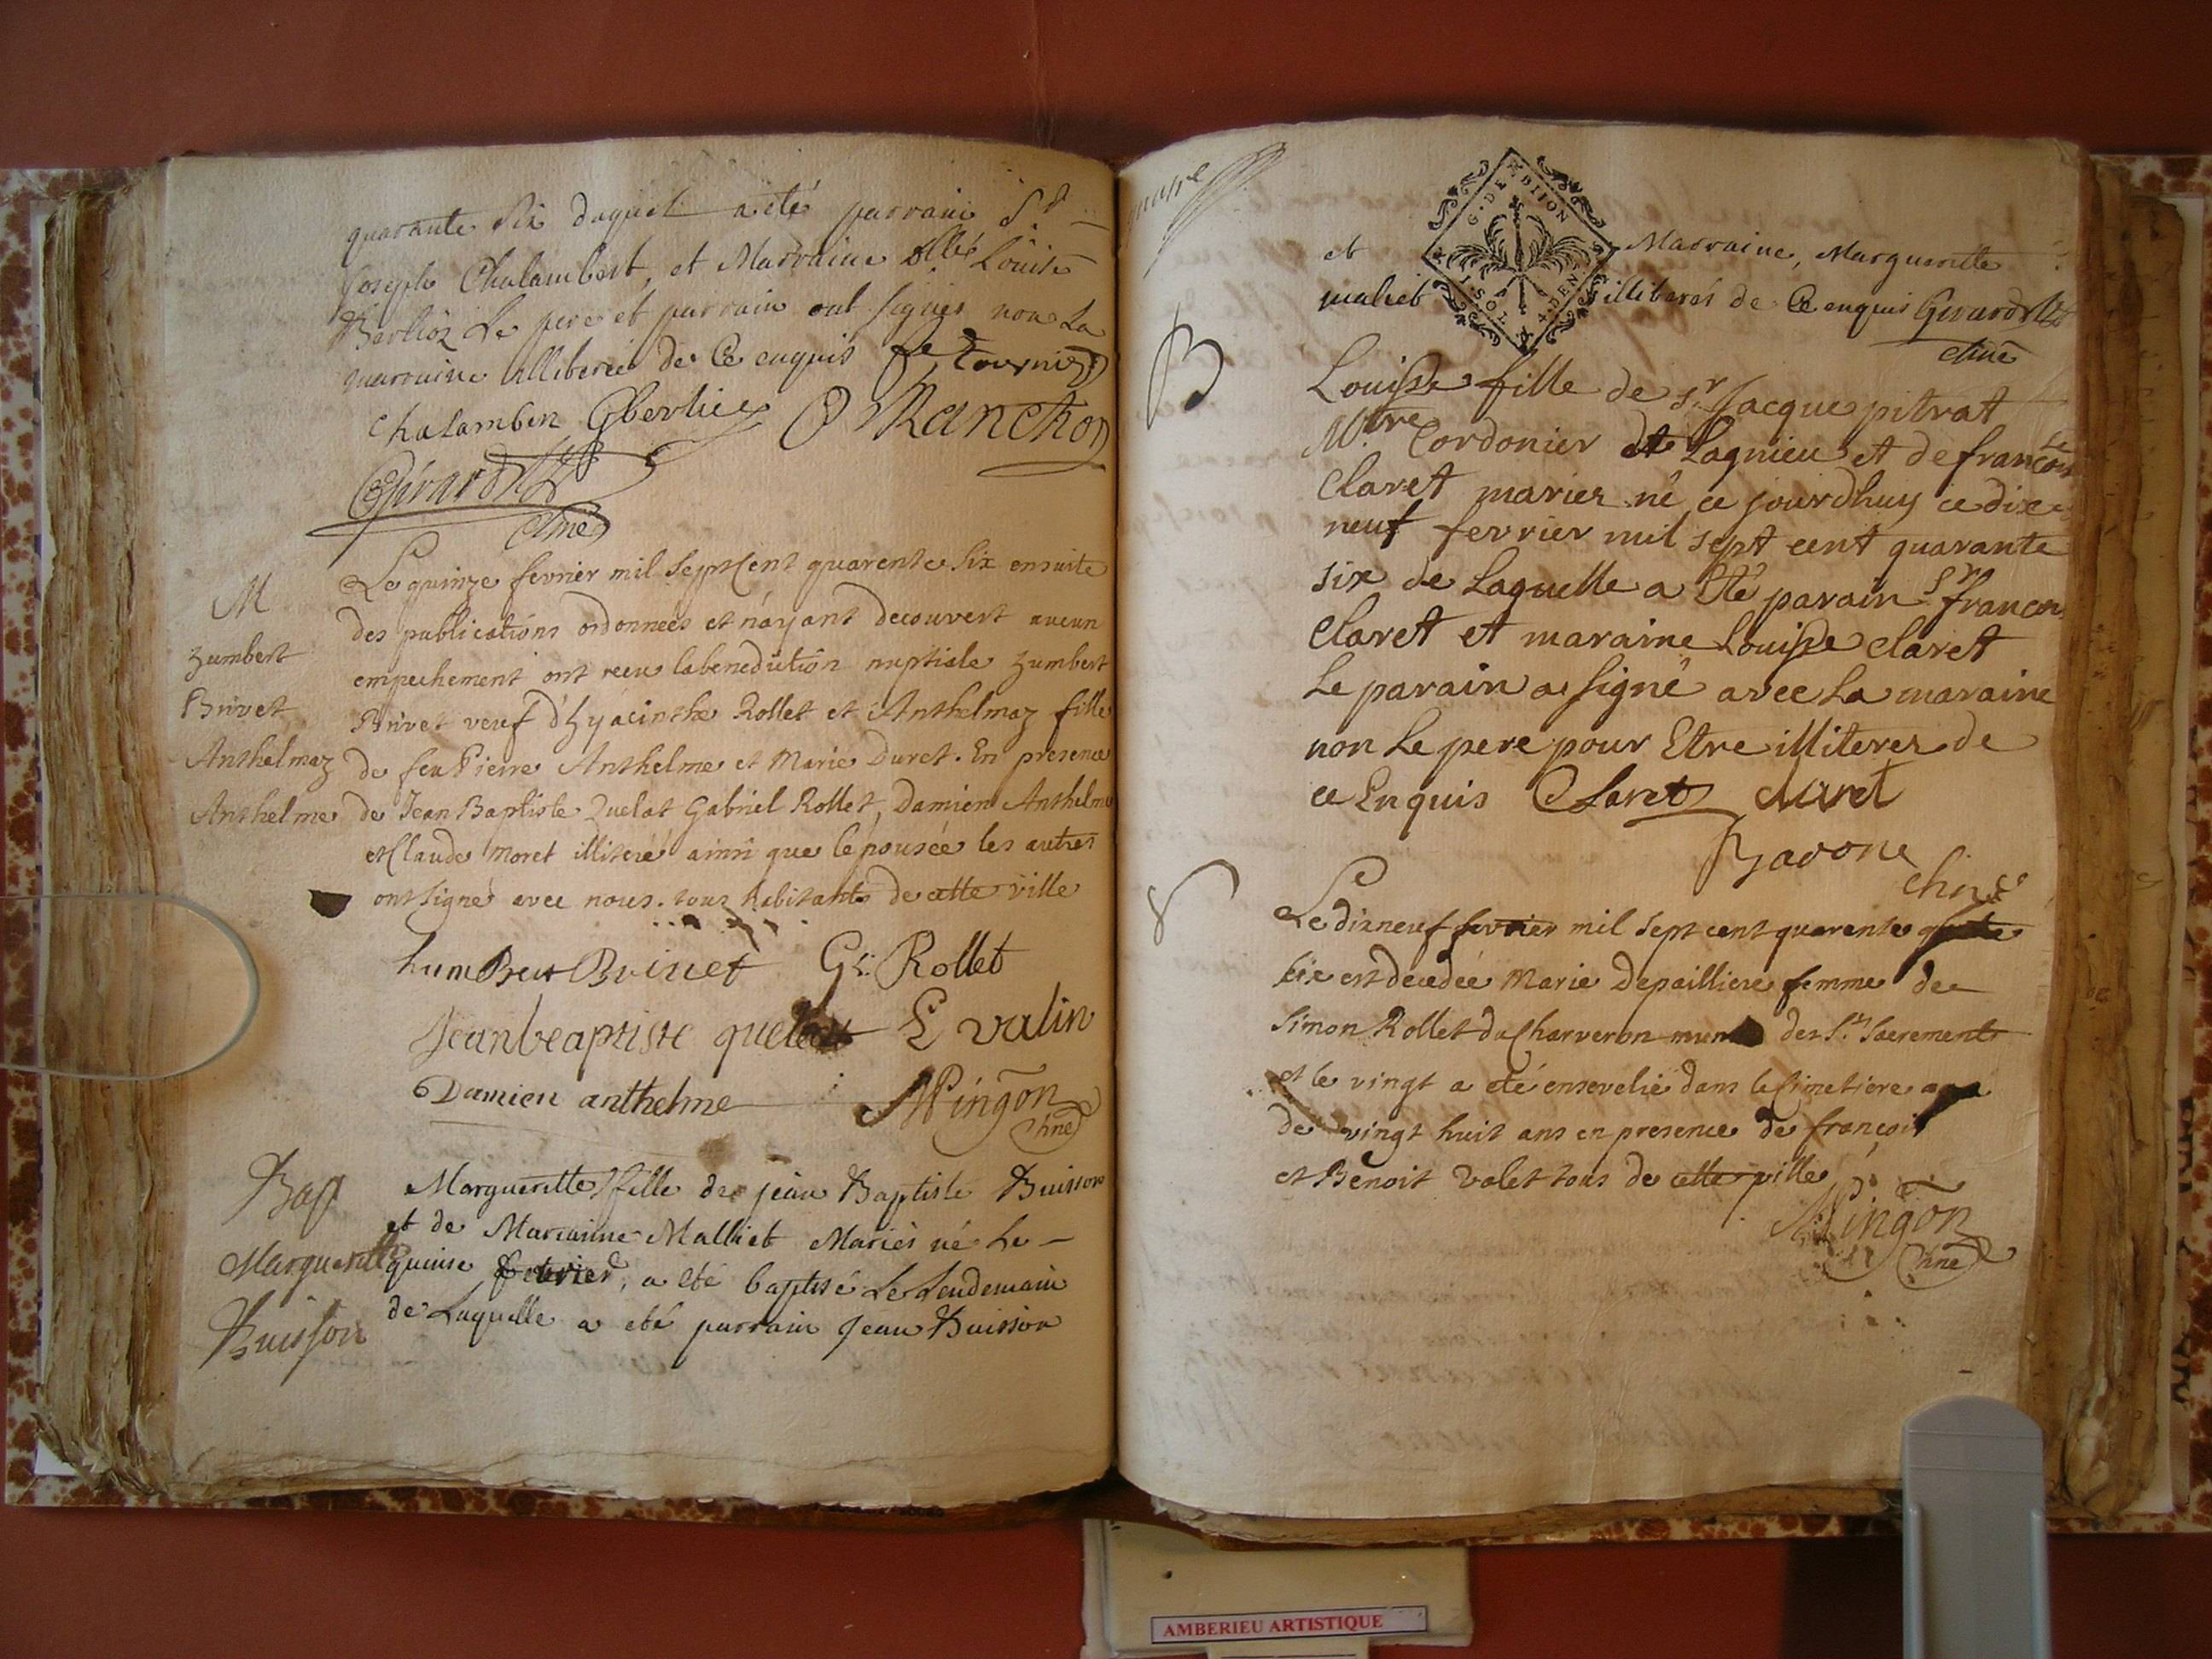 quarante six duquel a eté parrain Sr
Joseph Chalambert, et Marraine Dlle Louise
Berlioz Le pere et parrain ont signés non La
marraine illiberée de Ce enquis
chalamber Gberlie Ranchon
Girard
chne
M
Le quinze fevrier mil Sept Cent quarente Six ensuite
des publications ordonnees et n'ayant decouvert aucun
zumbert
empechement ont reçu la benediction nuptiale zumbert
Brivet
Brivet veuf d'hyacinthe Rollet et Anthelmaz fille
Anthelmaz
de feu Pierre Anthelme et Marie Duret. En presence
Anthelme
de Jean Baptiste Quelat Gabriel Rollet, Damien Anthelme
et Claude Moret illiteré ainsi que l'epousée les autres
ont signé avec nous. tous habitants de cette ville
humBert Brivet G. Rollet
Jeanbeaptiste quelat E valin
Damien anthelme Mingon
chne
Bap
Margueritte fille de jean Baptiste Buisson
et de Marianne Malliet Mariés né Le
Margueritte
quinse febvrier, a eté baptisé Le Lendemain
Buisson
de Laquelle a eté parrain Jean Buisson
G. DE DIJON
et Marraine, Margueritte
maliet illiberés de Ce enquis Girard
chne
B
Louisse fille de sr Jacque pitrat
Mtre Cordonier de Lagnieu et de francoise
Claret mariez né ce jourdhuy ce dix
neuf fevrier mil sept cent quarante
six de Laquelle a Eté parain Sr francois
Claret et maraine Louisse Claret
Le parain a signé avec La maraine
non Le pere pour Etre illiterez de
ce Enquis Claret claret
chne
Le dix neuf fevrier mil sept cent quarente
six est decedée Marie Depailliere femme de
Simon Rollet du Charveron des Sts Sacrements
et le vingt a eté ensevelie dans le Cimetiere
de vingt huit ans en presence de françois
et Benoit Valet tous de cette ville
Mingon
chne
AMBERIEU ARTISTIQUE